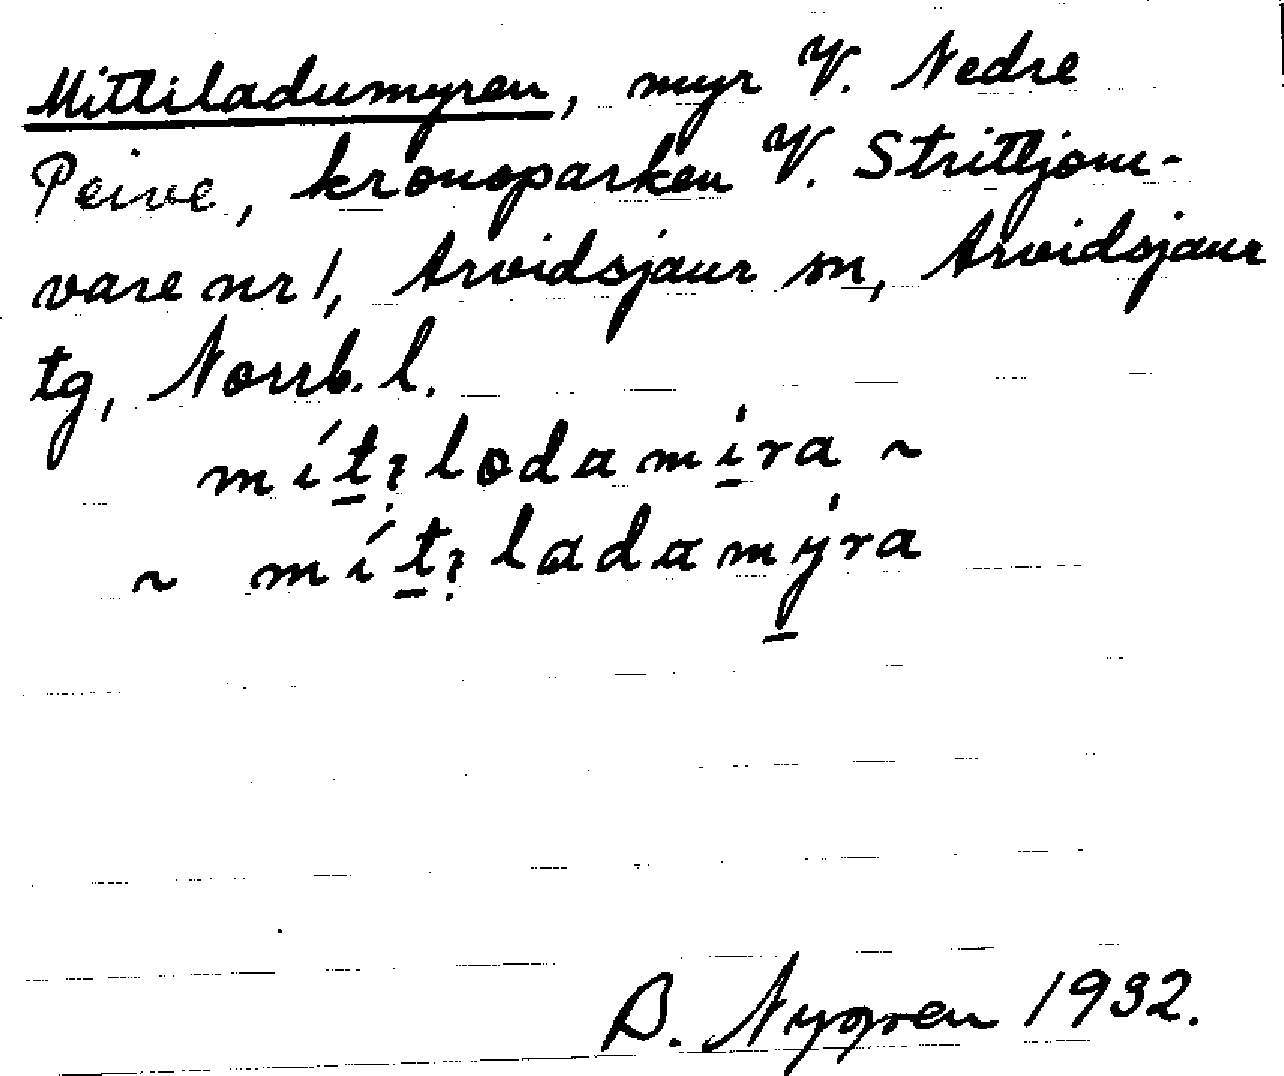 Mittiladumyren, myr V. Nedre
Peive, kronoparken V. Strittjom-
vare nr 1, Arvidsjaur sn, Arvidsjaur
tg, Norrb. l.
mít̲ʔ̣lodami̲ra ~
~ mít̲ʔ̣ladamy̲ra
B. Nygren 1932.